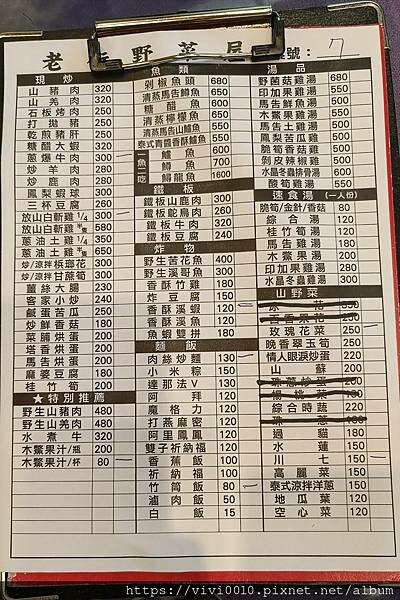 野菜
號：7
現炒
山豬肉 320
山羌肉 320
石板烤肉 250
打拋豬 250
乾煎豬肝 250
糖醋大蝦 320
蔥爆牛肉 300
炒羊肉 280
炒鹿肉 280
鳳梨蝦球 300
三杯豆腐 260
放山白斬雞 1/4 300
放山白斬雞 半隻 580
蔥油土雞 1/4 350
蔥油土雞 半隻 650
炒/涼拌檳瑯花 300
炒/涼拌甘蔗筍 300
薑絲大腸 230
客家小炒 240
鹹蛋苦瓜 250
炒鮮香菇 180
菜脯烘蛋 200
塔香烘蛋 200
馬告烘蛋 200
麻婆豆腐 180
桂竹筍 200
★特別推薦
野生山豬肉 480
野生山羌肉 480
水煮牛 320
木鱉果汁/瓶 200
木鱉果汁/杯 80
魚類
剁椒魚頭 680
清蒸馬告鱒魚 650
糖醋魚 650
清蒸檸檬魚 650
清蒸馬告山鱸魚 550
泰式青醬香酥鱸魚 550
一魚二吃
鱸魚 600
鱒魚 700
鱘龍魚 1600
鐵板
鐵板山鹿肉 300
鐵板鴕鳥肉 260
鐵板牛肉 320
鐵板豆腐 240
炸物
野生苦花魚 400
野生溪哥魚 300
香酥竹雞 180
炸豆腐 150
香酥溪蝦 120
香酥溪魚 120
魚蝦雙拼 180
麵飯
肉絲炒麵 130
小米粽 150
達那法V 130
阿拜 120
魔格力 120
打蔴密 120
阿里鳳鳳 120
雙子祈納福 120
香蕉飯 100
祈納福 100
竹筒飯 80
滷肉飯 50
白飯 15
湯品
野菌菇雞湯 680
印加果雞湯 550
馬告鮮魚湯 550
木鱉果雞湯 550
馬告土雞湯 550
鳳梨苦瓜雞 550
脆筍香菇雞 550
剝皮辣椒雞 550
水晶冬蟲排骨湯 600
酸筍雞湯 550
速食湯(一人份)
脆筍/金針/香菇 80
綜合湯 120
桂竹筍湯 120
馬告雞湯 180
木鱉果湯 200
印加果雞湯 280
水晶冬蟲雞湯 300
山野菜
玫瑰花菜 250
晚香翠玉筍 250
情人眼淚炒蛋 220
山蘇 200
綜合時蔬 220
過貓 180
水蓮 150
川七 150
高麗菜 150
泰式涼拌洋蔥 150
地瓜葉 120
空心菜 120
https://vivi0010.pixnet.net/album